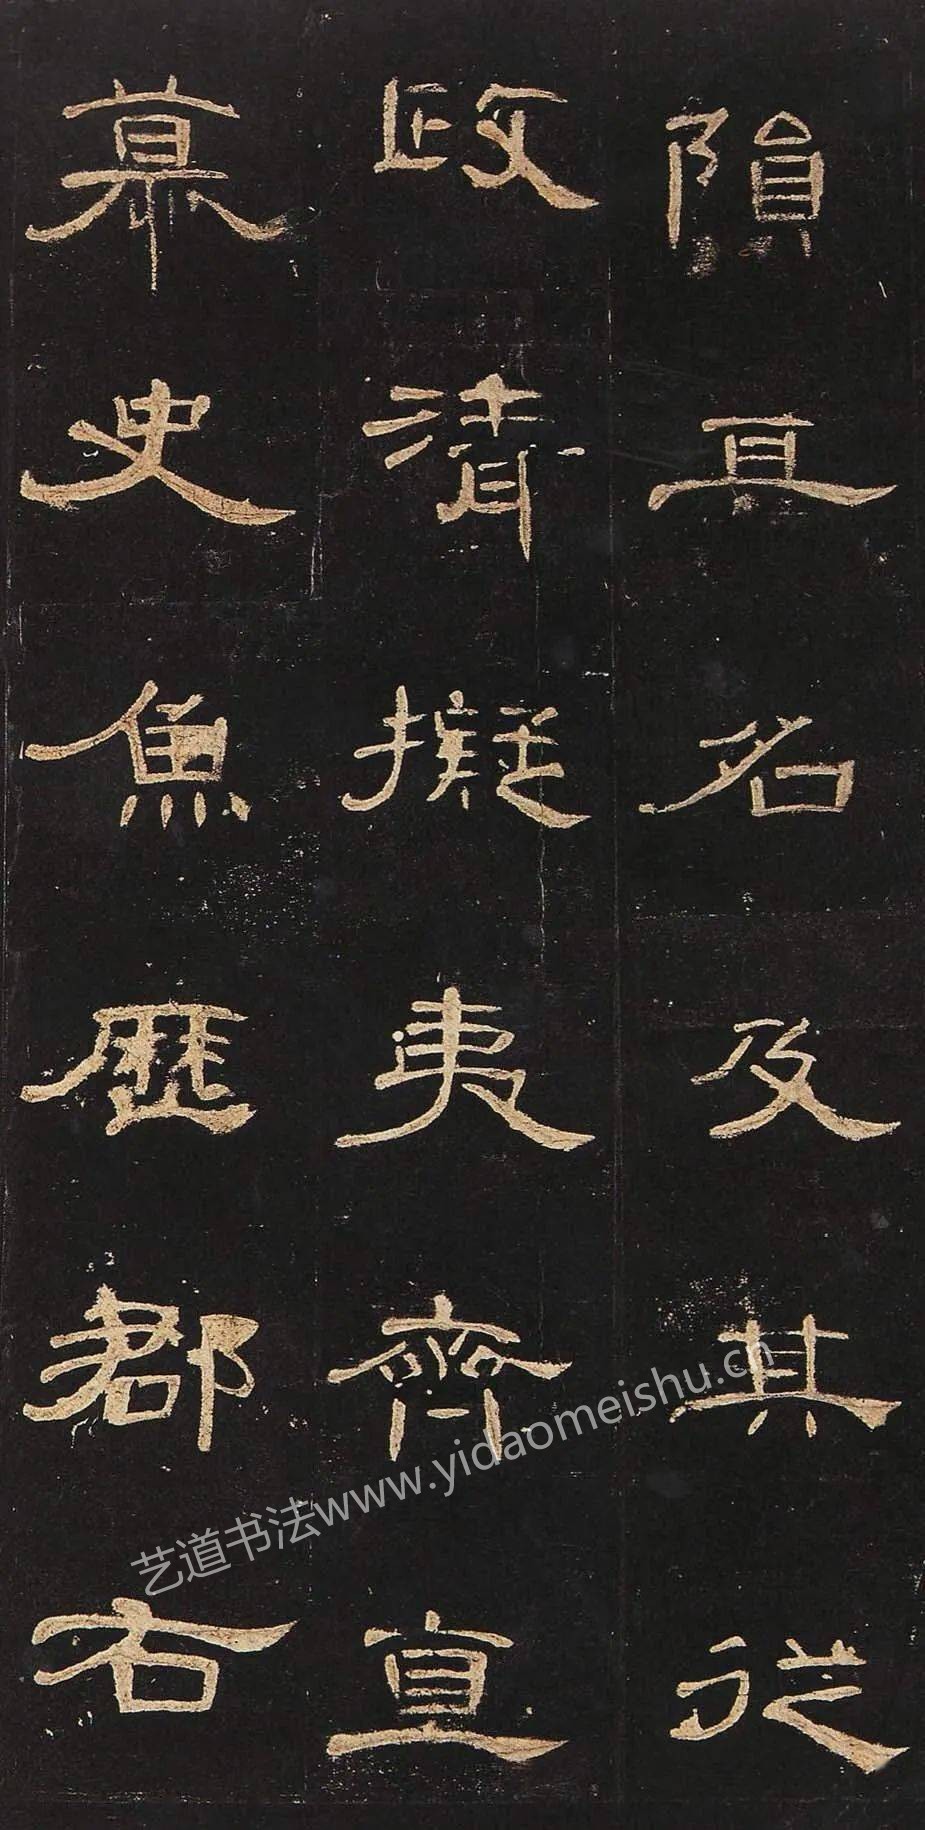 隕且名及其從
政清擬夷齊直
慕史魚歷郡右
艺道书法www.yidaomeishu.cn